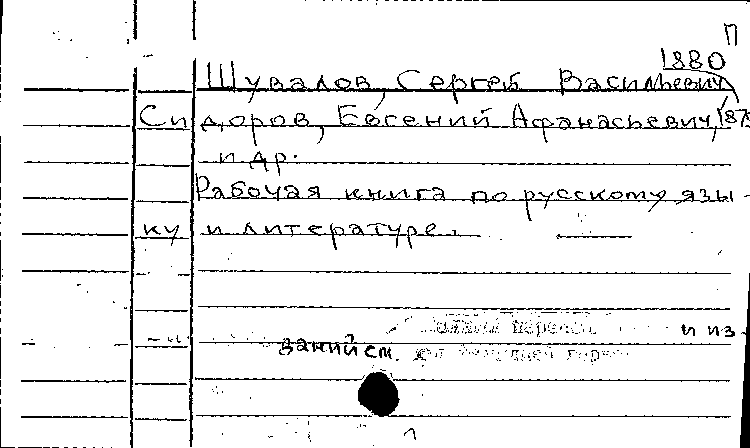 П
1880
Шувалов, Сергей Васильевич,
Сидоров, Евгений Афанасьевич, 187
и др.
Рабочая книга по русскому язы-
ку и литературе.
и из-
даний см.